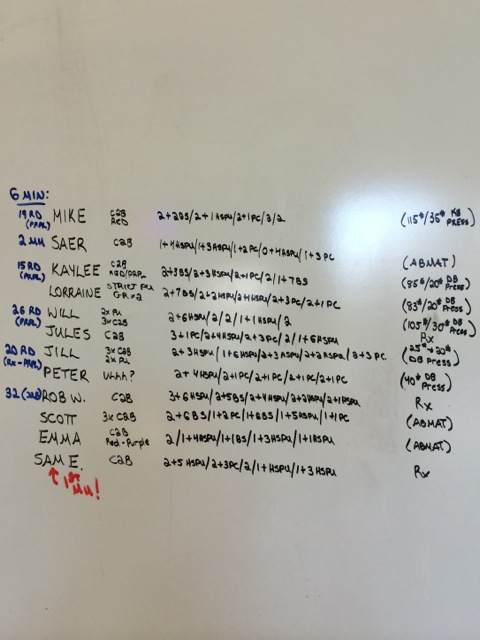 6 MIN:
19 RD (PRPL) MIKE C2B RED 2+2BS/2+1HSPU/2+1PC/3/2 (115#/35# KB PRESS)
2 MU SAER C2B 1+4HSPU/1+3HSPU/1+2PC/0+4HSPU/1+3PC (ABMAT)
15 RD (PRPL) KAYLEE C2B RED/PRPL 2+3BS/2+3HSPU/2+1PC/2/1+7BS (85#/20# DB PRESS)
LORRAINE STRICT PU 2+7BS/2+2HSPU/2+1HSPU/2+3PC/2+1PC (83#/20# DB PRESS)
26 RD (PRPL) WILL 2x PU 3x C2B 2+6HSPU/2/2/1+1HSPU/2 (105#/30# DB PRESS)
JULES C2B 3+1PC/2+4HSPU/2+3PC/2/1+6HSPU Rx
20 RD (RX-PRPL) JILL 3x C2B 2x PU 2+3HSPU/1+6HSPU/2+3HSPU/2+2HSPU/2+3PC (25#+20# DB PRESS)
PETER UHHH? 2+4HSPU/2+1PC/2+1PC/2+1PC/2+1PC (40# DB PRESS)
32 ROB W. C2B 3+6HSPU/2+5BS/2+4HSPU/2+2HSPU/2+1HSPU Rx
SCOTT 3x C2B 2+6BS/1+2PC/1+6BS/1+5HSPU/1+1PC (ABMAT)
EMMA C2B Red-Purple 2/1+4HSPU/1+1BS/1+3HSPU/1+1HSPU (ABMAT)
SAM E. C2B 2+5HSPU/2+3PC/2/1+4HSPU/1+3HSPU Rx
↑ 1ST MU!